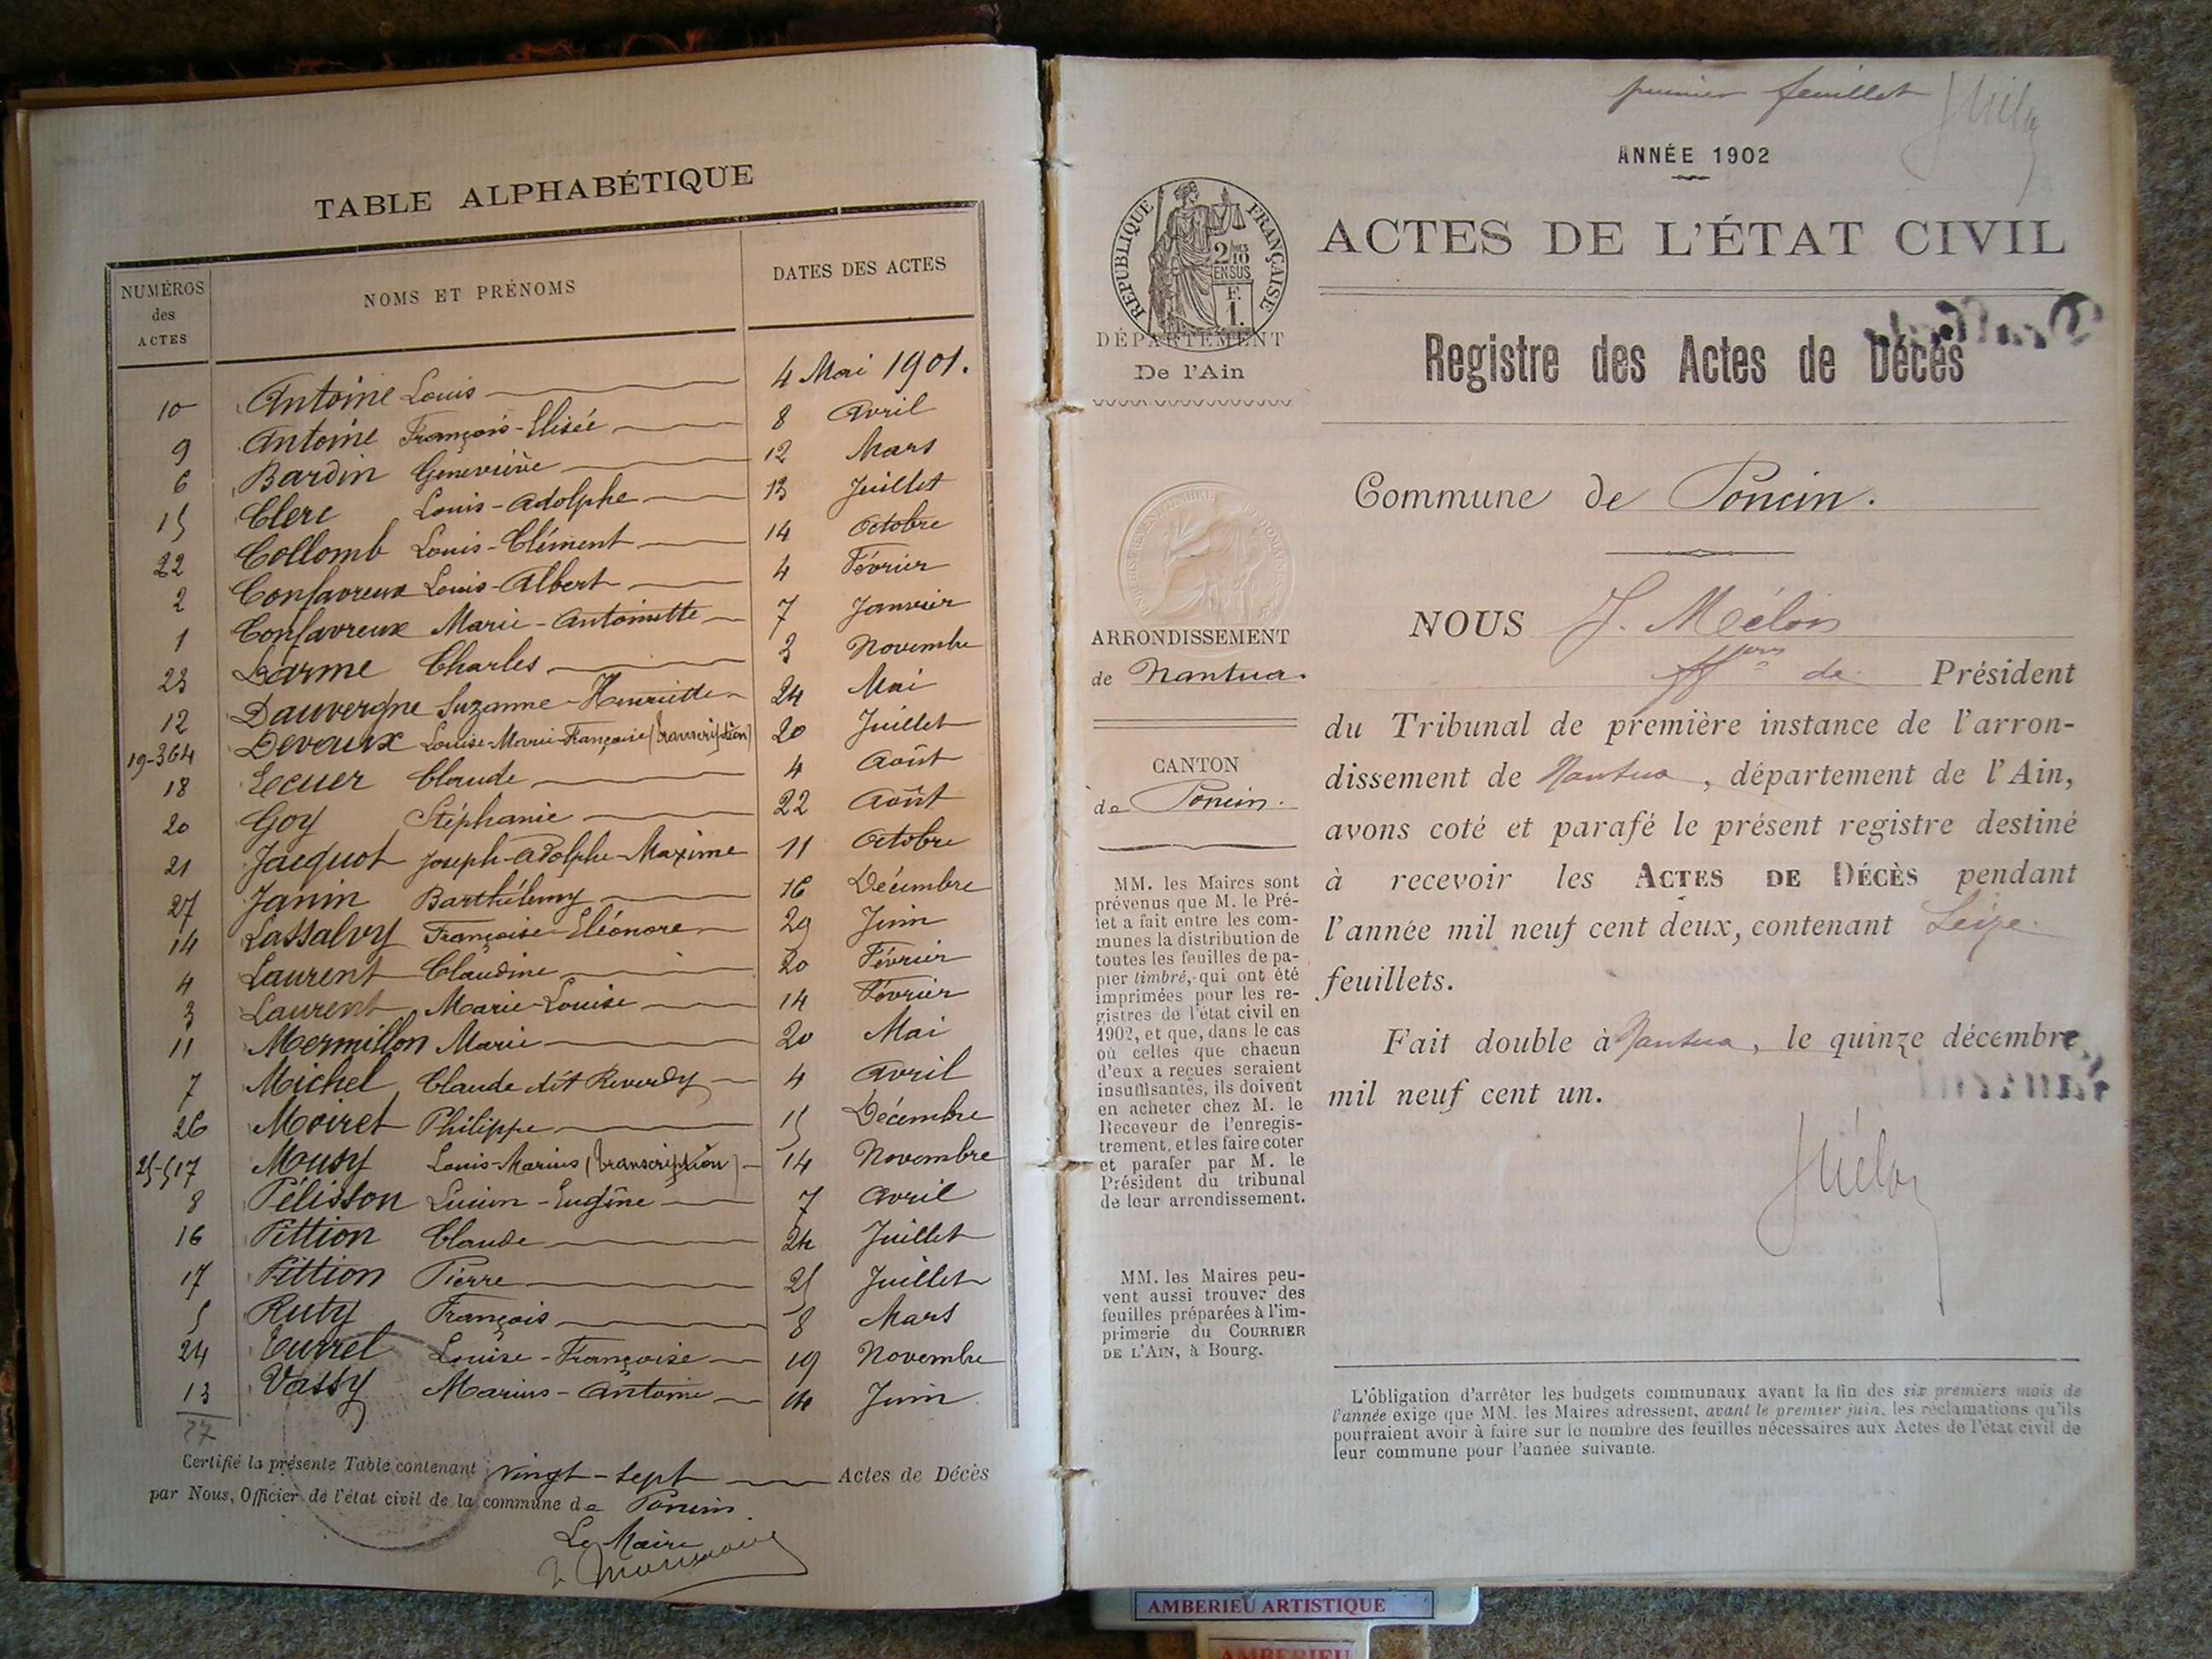 TABLE ALPHABÉTIQUE
NUMÉROS des ACTES NOMS ET PRÉNOMS DATES DES ACTES
10 Antoine Louis 4 Mai 1901.
9 Antoine François-Elisée 8 Avril
6 Bardin Geneviève 12 Mars
15 Clerc Louis-Adolphe 13 Juillet
22 Collomb Louis-Clément 14 Octobre
2 Confavreux Louis-Albert 4 Février
1 Confavreux Marie-Antoinette 7 Janvier
23 Darme Charles 3 Novembre
12 Dauvergne Suzanne-Henriette 24 Mai
19-364 Devaux Louise-Marie-Françoise (transcription) 20 Juillet
18 Ecuer Claude 4 Août
20 Goy Stéphanie 22 Août
21 Jacquot Joseph-Adolphe-Maxime 11 Octobre
27 Janin Barthélemy 16 Décembre
14 Lassalvy Françoise-Eléonore 29 Juin
4 Laurent Claudine 20 Février
3 Laurent Marie-Louise 14 Février
11 Mermillon Marie 20 Mai
7 Michel Claude dit Reverdy 4 Avril
26 Moiret Philippe 15 Décembre
25-517 Musy Louis-Marius (transcription) 14 Novembre
8 Pélisson Lucien-Eugène 7 Avril
16 Pittion Claude 24 Juillet
17 Pittion Pierre 25 Juillet
5 Ruty François 8 Mars
24 Turrel Louise-Françoise 19 Novembre
13 Vassy Marius-Antoine 14 Juin
27
Certifié la présente Table contenant vingt-sept Actes de Décès
par Nous, Officier de l'état civil de la commune de Poncin
Le Maire
premier feuillet
ANNÉE 1902
RÉPUBLIQUE FRANÇAISE
2/10 EN SUS
F. 1.
ACTES DE L'ÉTAT CIVIL
DÉPARTEMENT
De l'Ain
Registre des Actes de Décès
Commune de Poncin.
ARRONDISSEMENT
de Nantua.
CANTON
de Poncin.
MM. les Maires sont
prévenus que M. le Pré-
fet a fait entre les com-
munes la distribution de
toutes les feuilles de pa-
pier timbré, qui ont été
imprimées pour les re-
gistres de l'état civil en
1902, et que, dans le cas
où celles que chacun
d'eux a reçues seraient
insuffisantes, ils doivent
en acheter chez M. le
Receveur de l'enregis-
trement, et les faire coter
et parafer par M. le
Président du tribunal
de leur arrondissement.
MM. les Maires peu-
vent aussi trouver des
feuilles préparées à l'im-
primerie du COURRIER
DE L'AIN, à Bourg.
NOUS J. Mélois
de Président
du Tribunal de première instance de l'arron-
dissement de Nantua, département de l'Ain,
avons coté et parafé le présent registre destiné
à recevoir les ACTES DE DÉCÈS pendant
l'année mil neuf cent deux, contenant Seize
feuillets.
Fait double à Nantua, le quinze décembre
mil neuf cent un.
L'obligation d'arrêter les budgets communaux avant la fin des six premiers mois de
l'année exige que MM. les Maires adressent, avant le premier juin, les réclamations qu'ils
pourraient avoir à faire sur le nombre des feuilles nécessaires aux Actes de l'état civil de
leur commune pour l'année suivante.
AMBERIEU ARTISTIQUE
AMBERIEU